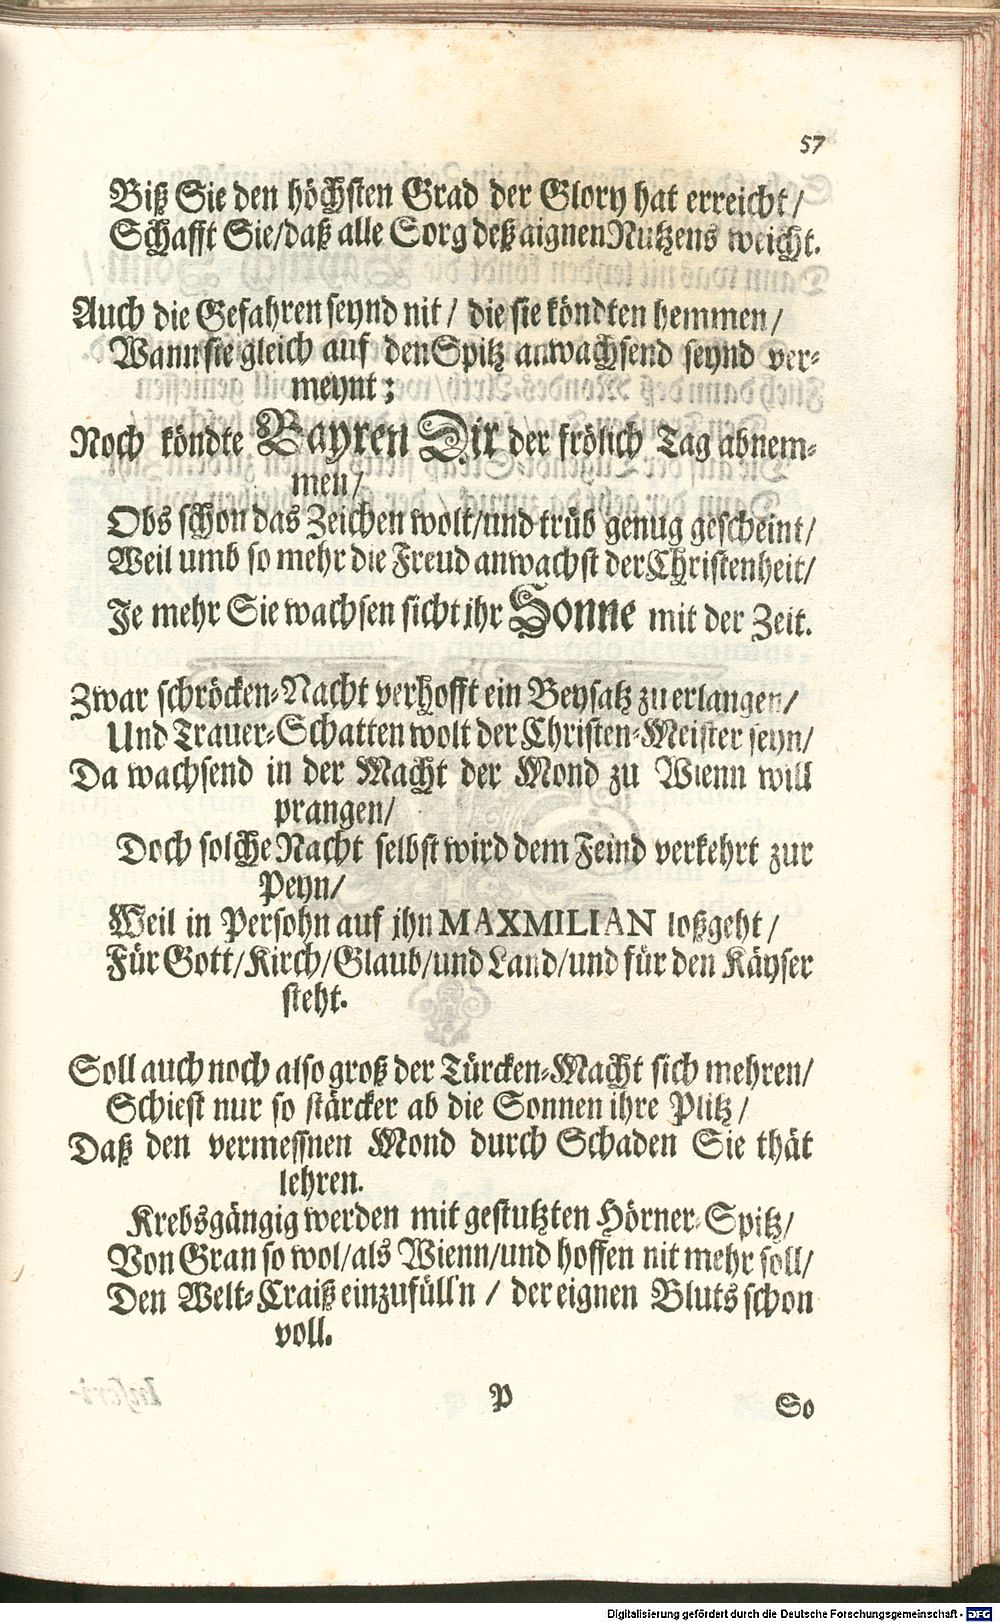 57
Biß Sie den höchsten Grad der Glory hat erreicht/
Schafft Sie/daß alle Sorg deß aignen Nutzens weicht.
Auch die Gefahren seynd nit/ die sie köndten hemmen/
Wann sie gleich auf den Spitz anwachsend seynd ver-
meynt;
Noch köndte Bayren Dir der frölich Tag abnem-
men/
Obs schon das Zeichen wolt/und trüb genug gescheint/
Weil umb so mehr die Freud anwachst der Christenheit/
Je mehr Sie wachsen sicht ihr Sonne mit der Zeit.
Zwar schröcken-Nacht verhofft ein Beysatz zu erlangen/
Und Trauer-Schatten wolt der Christen-Meister seyn/
Da wachsend in der Macht der Mond zu Wienn will
prangen/
Doch solche Nacht selbst wird dem Feind verkehrt zur
Peyn/
Weil in Persohn auf ihn MAXMILIAN loßgeht/
Für Gott/Kirch/Glaub/und Land/und für den Käyser
steht.
Soll auch noch also groß der Türcken-Macht sich mehren/
Schiest nur so stärcker ab die Sonnen ihre Plitz/
Daß den vermessnen Mond durch Schaden Sie thät
lehren.
Krebsgängig werden mit gestutzten Hörner-Spitz/
Von Gran so wol/als Wienn/und hoffen nit mehr soll/
Den Welt-Craiß einzufüll'n / der eignen Bluts schon
voll.
P
So
Digitalisierung gefördert durch die Deutsche Forschungsgemeinschaft - DFG